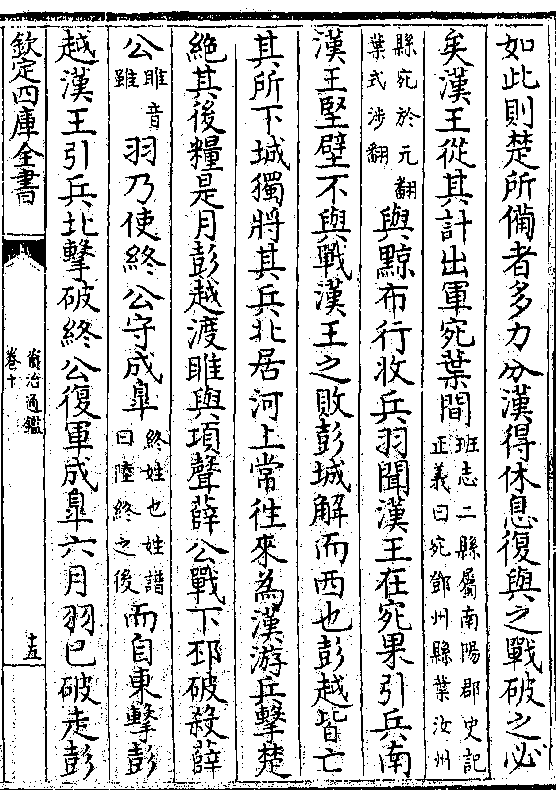 如此則楚所備者多力分漢得休息復與之戰破之必
矣漢王從其計出軍宛葉間班志二縣屬南陽郡史記正義曰宛鄧州縣葉汝州
縣宛於元翻葉式涉翻與黥布行收兵羽聞漢王在宛果引兵南
漢王堅壁不與戰漢王之敗彭城解而西也彭越皆亡
其所下城獨將其兵北居河上常徃來為漢游兵擊楚
絶其後糧是月彭越渡睢與項聲薛公戰下邳破殺薛
公睢音雖羽乃使終公守成臯終姓也姓譜曰陸終之後而自東擊彭
越漢王引兵北擊破終公復軍成臯六月羽已破走彭
欽定四庫全書
資治通鑑
卷十
十五